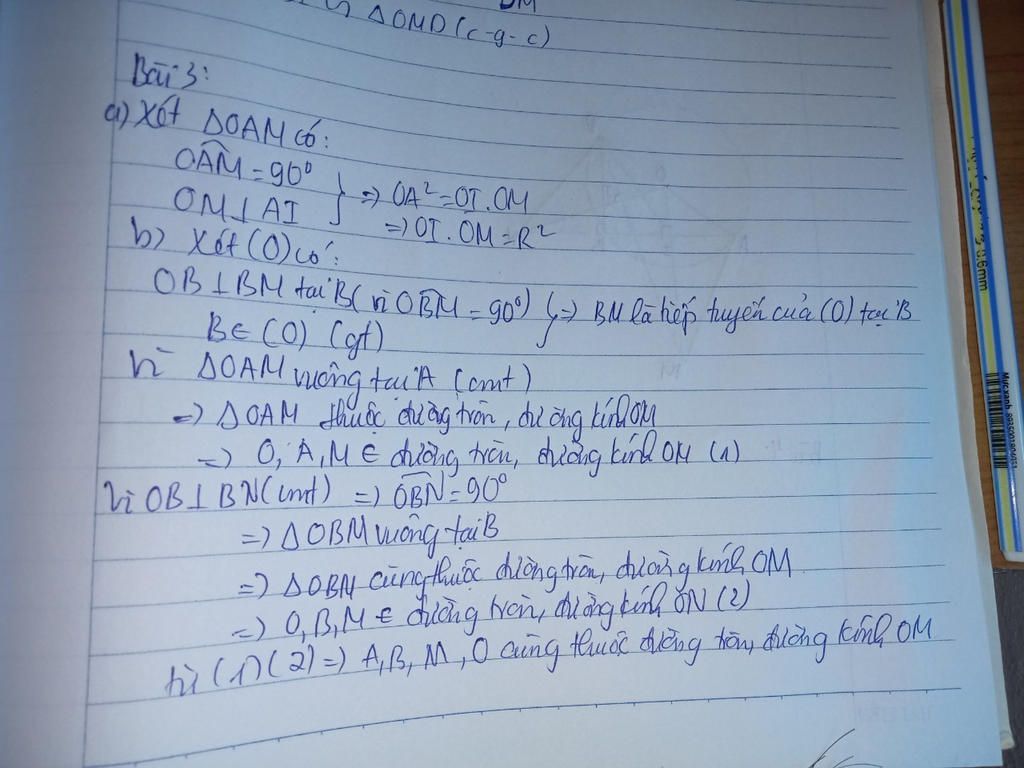 ΔOMD (c-g-c)
Bài 3:
a) Xét ΔOAM có:
OÂM = 90°
OM ⊥ AI
} => OA² = OI.OM
=> OI.OM = R²
b) Xét (O) có:
OB ⊥ BM tại B (vì OB̂M = 90°)
B ∈ (O) (gt)
} => BM là tiếp tuyến của (O) tại B
Vì ΔOAM vuông tại A (cmt)
=> ΔOAM thuộc đường tròn, đường kính OM
=> O, A, M ∈ đường tròn, đường kính OM (1)
Vì OB ⊥ BN (cmt) => OB̂N = 90°
=> ΔOBM vuông tại B
=> ΔOBN cùng thuộc đường tròn, đường kính OM
=> O, B, M ∈ đường tròn, đường kính ON (2)
từ (1) (2) => A, B, M, O cùng thuộc đường tròn, đường kính OM
0.6mm